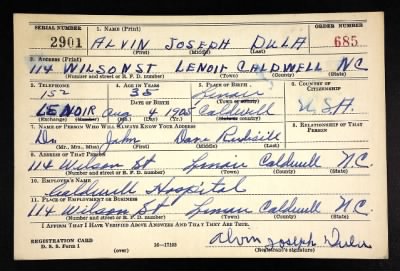 SERIAL NUMBER 1. NAME (Print) ORDER NUMBER
2901 ALVIN JOSEPH DULA 685
(First) (Middle) (Last)
2. ADDRESS (Print)
114 WILSON ST LENOIR CALDWELL NC
(Number and street or R. F. D. number) (Town) (County) (State)
3. TELEPHONE 4. AGE IN YEARS 5. PLACE OF BIRTH 6. COUNTRY OF CITIZENSHIP
152 35 Lenoir
DATE OF BIRTH (Town or county)
LENOIR Aug 4 1905 Caldwell U.S.A.
(Exchange) (Number) (Mo.) (Day) (Yr.) (State or country)
7. NAME OF PERSON WHO WILL ALWAYS KNOW YOUR ADDRESS 8. RELATIONSHIP OF THAT PERSON
Dr. John Dave Rudisill
(Mr., Mrs., Miss) (First) (Middle) (Last)
9. ADDRESS OF THAT PERSON
114 Wilson St Lenoir Caldwell N.C.
(Number and street or R. F. D. number) (Town) (County) (State)
10. EMPLOYER'S NAME
Caldwell Hospital
11. PLACE OF EMPLOYMENT OR BUSINESS
114 Wilson St Lenoir Caldwell N.C.
(Number and street or R. F. D. number) (Town) (County) (State)
I AFFIRM THAT I HAVE VERIFIED ABOVE ANSWERS AND THAT THEY ARE TRUE.
Alvin Joseph Dula
REGISTRATION CARD
D. S. S. Form 1 (over) 16—17105 (Registrant's signature)